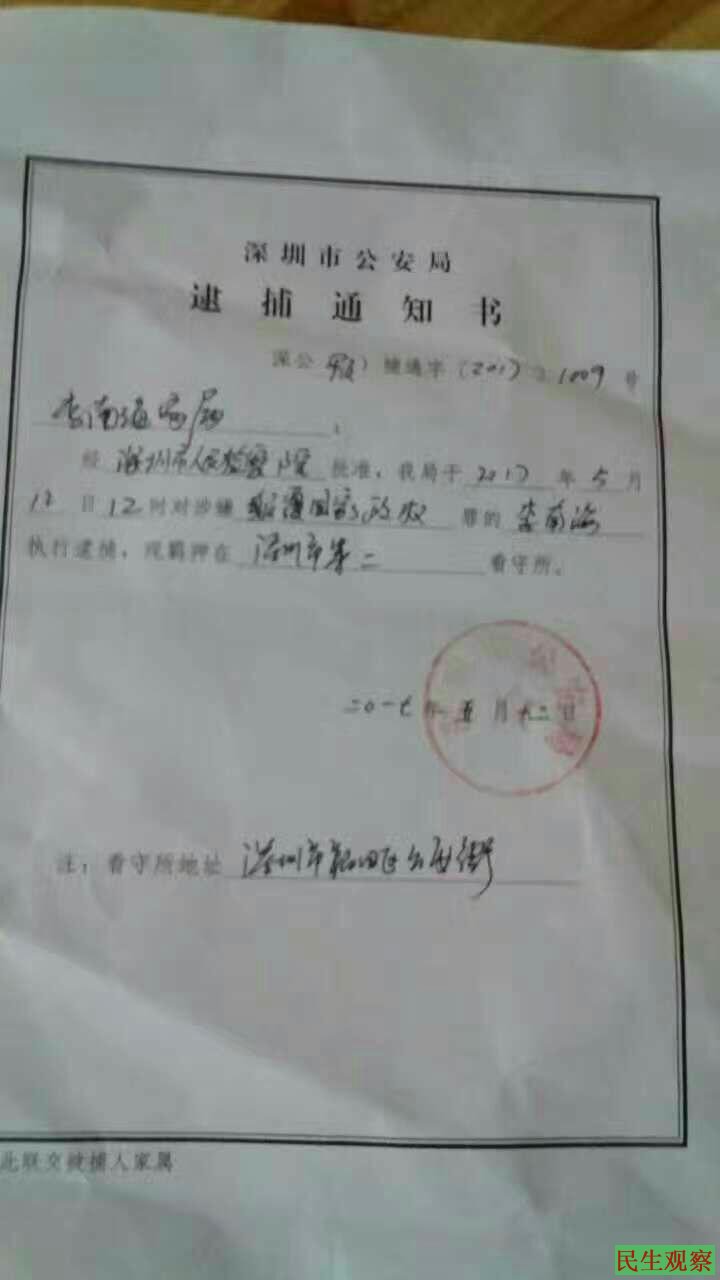 深圳市公安局
逮捕通知书
深公（ ）捕通字（2017）1009号
李南海家属：
经 深圳市人民检察院 批准，我局于 2017 年 5 月
12 日 12 时对涉嫌 颠覆国家政权 罪的 李南海
执行逮捕，现羁押在 深圳市第二 看守所。
二〇一七年五月十二日
注：看守所地址 深圳市 区 街
此联交被捕人家属
民生观察